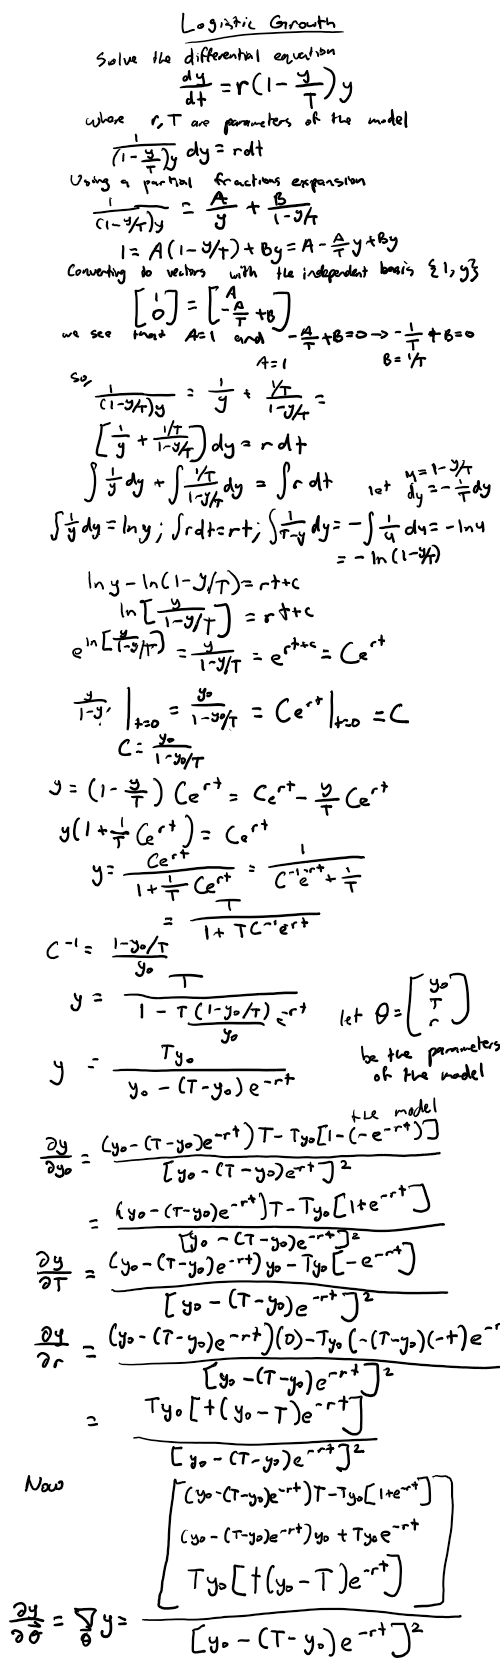 Logistic Growth
Solve the differential equation
dy/dt = r(1 - y/T) y
where r, T are parameters of the model
1/((1 - y/T)y) dy = rdt
Using a partial fractions expansion
1/((1-y/T)y) = A/y + B/(1-y/T)
1 = A(1-y/T) + By = A - A/T y + By
Converting to vectors with the independent basis {1, y}
[1; 0] = [A; -A/T + B]
we see that A=1 and -A/T + B = 0 → -1/T + B = 0
A=1 B = 1/T
so, 1/((1-y/T)y) = 1/y + (1/T)/(1-y/T) =
[1/y + (1/T)/(1-y/T)] dy = rdt
∫ 1/y dy + ∫ (1/T)/(1-y/T) dy = ∫ r dt let u = 1-y/T
dy = -1/T dy
∫ 1/y dy = ln y ; ∫ rdt = rt ; ∫ 1/(T-y) dy = -∫ 1/u du = -ln u
= -ln(1-y/T)
ln y - ln(1-y/T) = rt+c
ln[y/(1-y/T)] = rt+c
e^(ln[y/(1-y/T)]) = y/(1-y/T) = e^(rt+c) = Ce^(rt)
y/(1-y) |t=0 = y₀/(1-y₀/T) = Ce^(rt) |t=0 = C
C = y₀/(1-y₀/T)
y = (1 - y/T) Ce^(rt) = Ce^(rt) - y/T Ce^(rt)
y(1 + 1/T Ce^(rt)) = Ce^(rt)
y = Ce^(rt)/(1 + 1/T Ce^(rt)) = 1/(C^(-1)e^(-rt) + 1/T)
= T/(1 + TC^(-1)e^(rt))
C^(-1) = (1-y₀/T)/y₀
y = T/(1 - T (1-y₀/T)/y₀ e^(-rt)) let θ = [y₀; T; r]
y = Ty₀/(y₀ - (T-y₀)e^(-rt)) be the parameters
of the model
the model
∂y/∂y₀ = ((y₀-(T-y₀)e^(-rt))T - Ty₀[1-(-e^(-rt))])/[y₀-(T-y₀)e^(-rt)]²
= ((y₀-(T-y₀)e^(-rt))T - Ty₀[1+e^(-rt)])/[y₀-(T-y₀)e^(-rt)]²
∂y/∂T = ((y₀-(T-y₀)e^(-rt))y₀ - Ty₀[-e^(-rt)])/[y₀-(T-y₀)e^(-rt)]²
∂y/∂r = ((y₀-(T-y₀)e^(-rt))(0) - Ty₀(-(T-y₀)(-t)e^(-r/[y₀-(T-y₀)e^(-rt)]²
= Ty₀[t(y₀-T)e^(-rt)]/[y₀-(T-y₀)e^(-rt)]²
Now
∂y/∂θ = ∇θ y = [(y₀-(T-y₀)e^(-rt))T-Ty₀[1+e^(-rt)]; (y₀-(T-y₀)e^(-rt))y₀+Ty₀e^(-rt); Ty₀[t(y₀-T)e^(-rt)]]/[y₀-(T-y₀)e^(-rt)]²